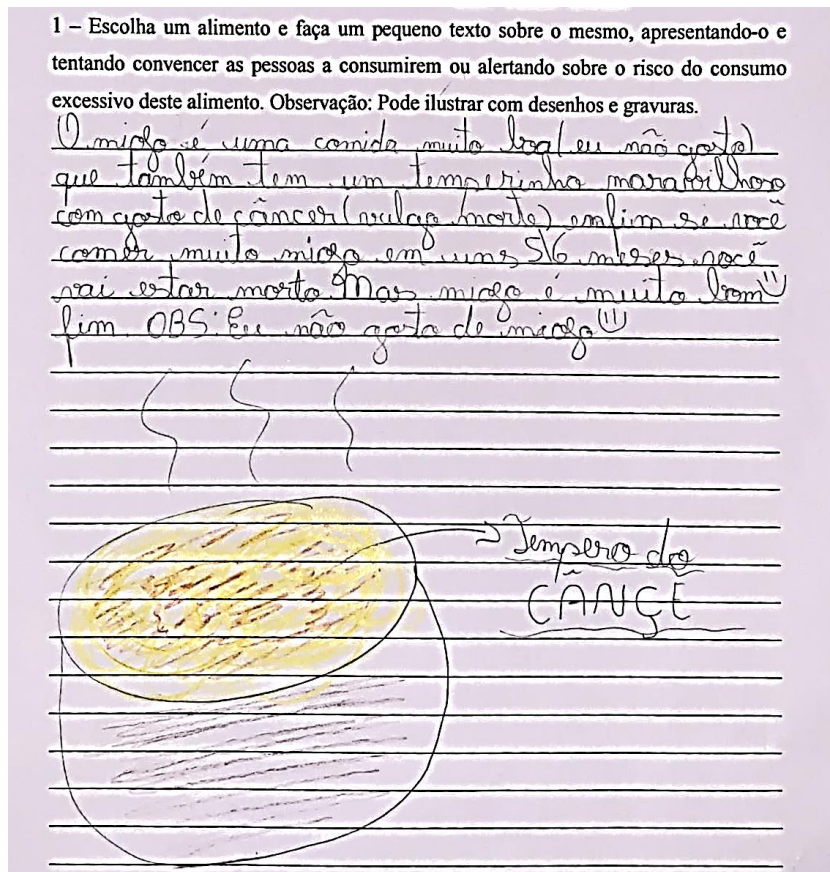 1 – Escolha um alimento e faça um pequeno texto sobre o mesmo, apresentando-o e
tentando convencer as pessoas a consumirem ou alertando sobre o risco do consumo
excessivo deste alimento. Observação: Pode ilustrar com desenhos e gravuras.
O miojo é uma comida muito boa (eu não gosto)
que também tem um temperinho maravilhoso
com gosto de câncer (vulgo morte) enfim se você
comer muito miojo em uns 5\6 meses você
vai estar morto Mas miojo é muito bom
fim OBS: Eu não gosto de miojo
Tempero do
CÂNÇE